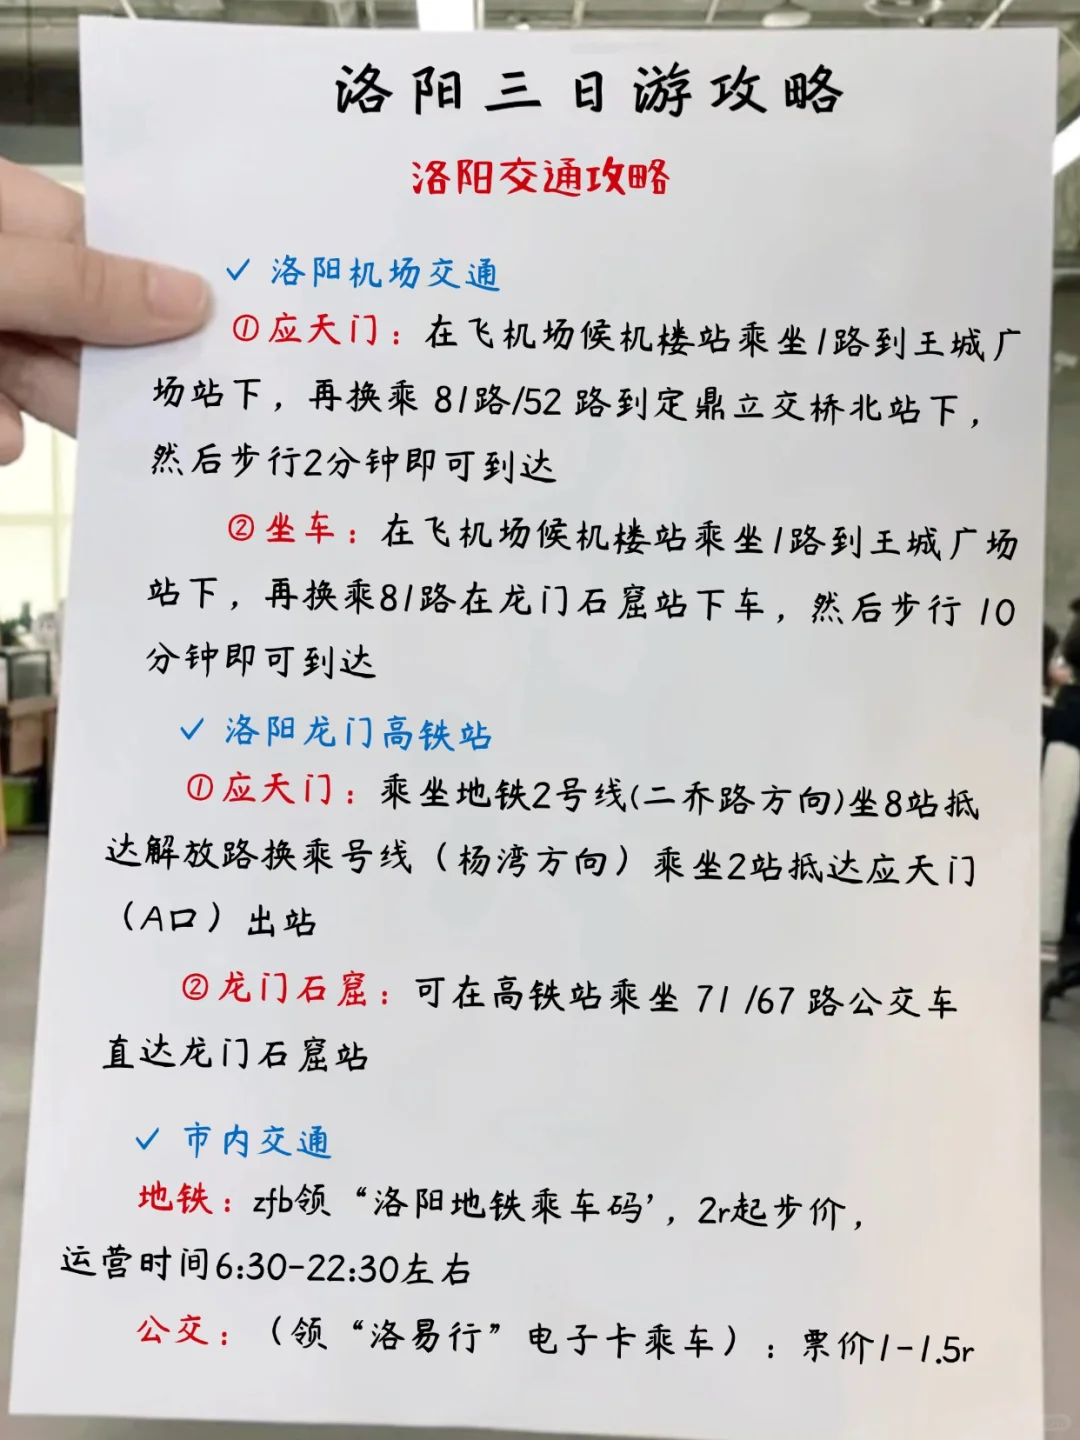 洛阳三日游攻略
洛阳交通攻略
✓ 洛阳机场交通
①应天门：在飞机场候机楼站乘坐1路到王城广
场站下，再换乘 81路/52 路到定鼎立交桥北站下，
然后步行2分钟即可到达
②坐车：在飞机场候机楼站乘坐1路到王城广场
站下，再换乘81路在龙门石窟站下车，然后步行 10
分钟即可到达
✓ 洛阳龙门高铁站
①应天门：乘坐地铁2号线(二乔路方向)坐8站抵
达解放路换乘号线（杨湾方向）乘坐2站抵达应天门
（A口）出站
②龙门石窟：可在高铁站乘坐 71 /67 路公交车
直达龙门石窟站
✓ 市内交通
地铁：zfb领“洛阳地铁乘车码’，2r起步价，
运营时间6:30-22:30左右
公交：（领“洛易行”电子卡乘车）：票价1-1.5r